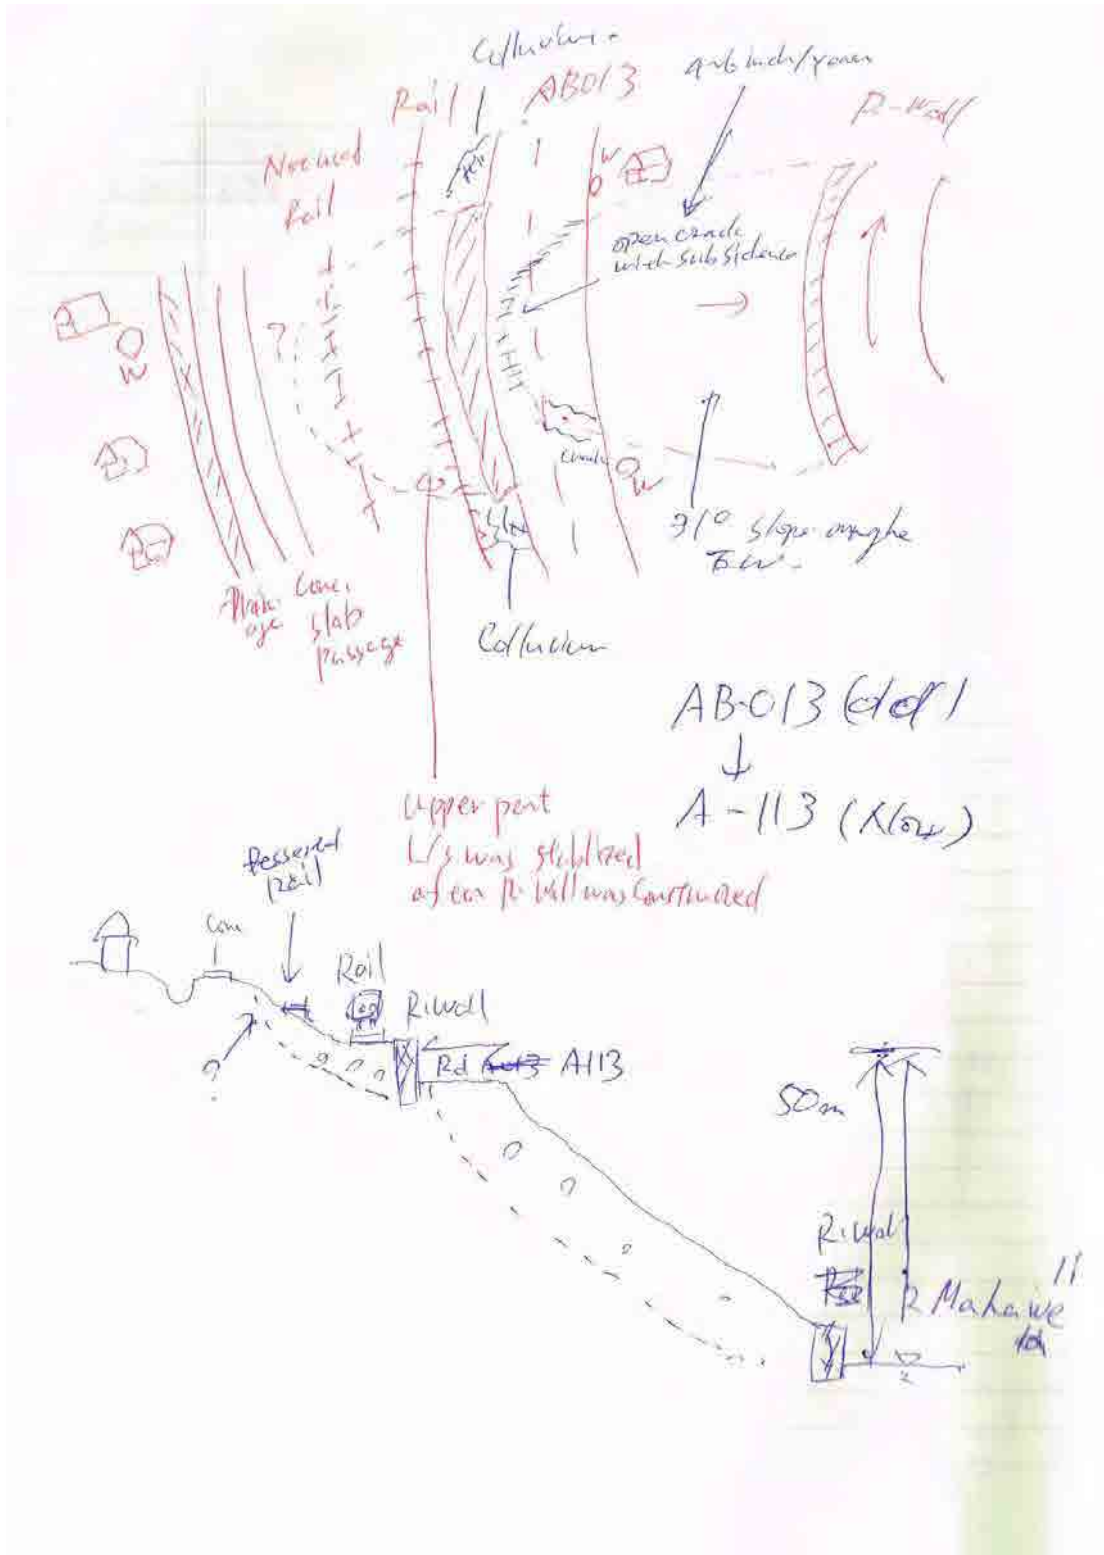 Colluvium
Rail
AB013
4~6 inch/year
R-Wall
Rail
W
open crack
with subsidence
?
W
Crack
W
31° slope
Drain
age
Conc.
slab
passage
Colluvium
AB-013 (old)
A-113 (Now)
Upper part
L/s was stablized
after R-Wall was Constructed
Rail
Conc
Rail
R.Wall
?
Rd A113
50m
R.Wall
R Mahawe